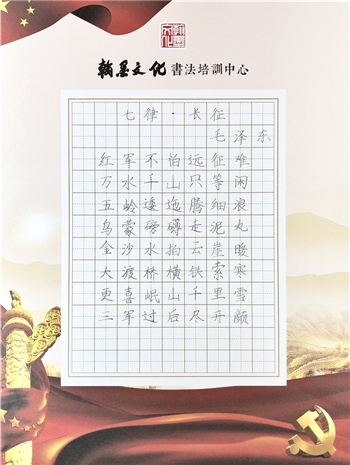 翰墨文化 書法培訓中心
七律·长征
毛泽东
红军不怕远征难
万水千山只等闲
五岭逶迤腾细浪
乌蒙磅礴走泥丸
金沙水拍云崖暖
大渡桥横铁索寒
更喜岷山千里雪
三军过后尽开颜